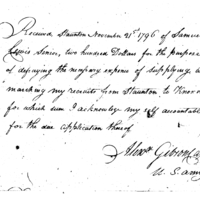 Received Staunton November 21st 1796 of Samuel
Lewis Senior, two hundred Dollars for the purpose
of defraying the necessary expence of supplying &
marching my recruits from Staunton to Knox
for which sum I acknowledge my self accountable
for the due application thereof
Alexr Gibson Ca
U. S. army